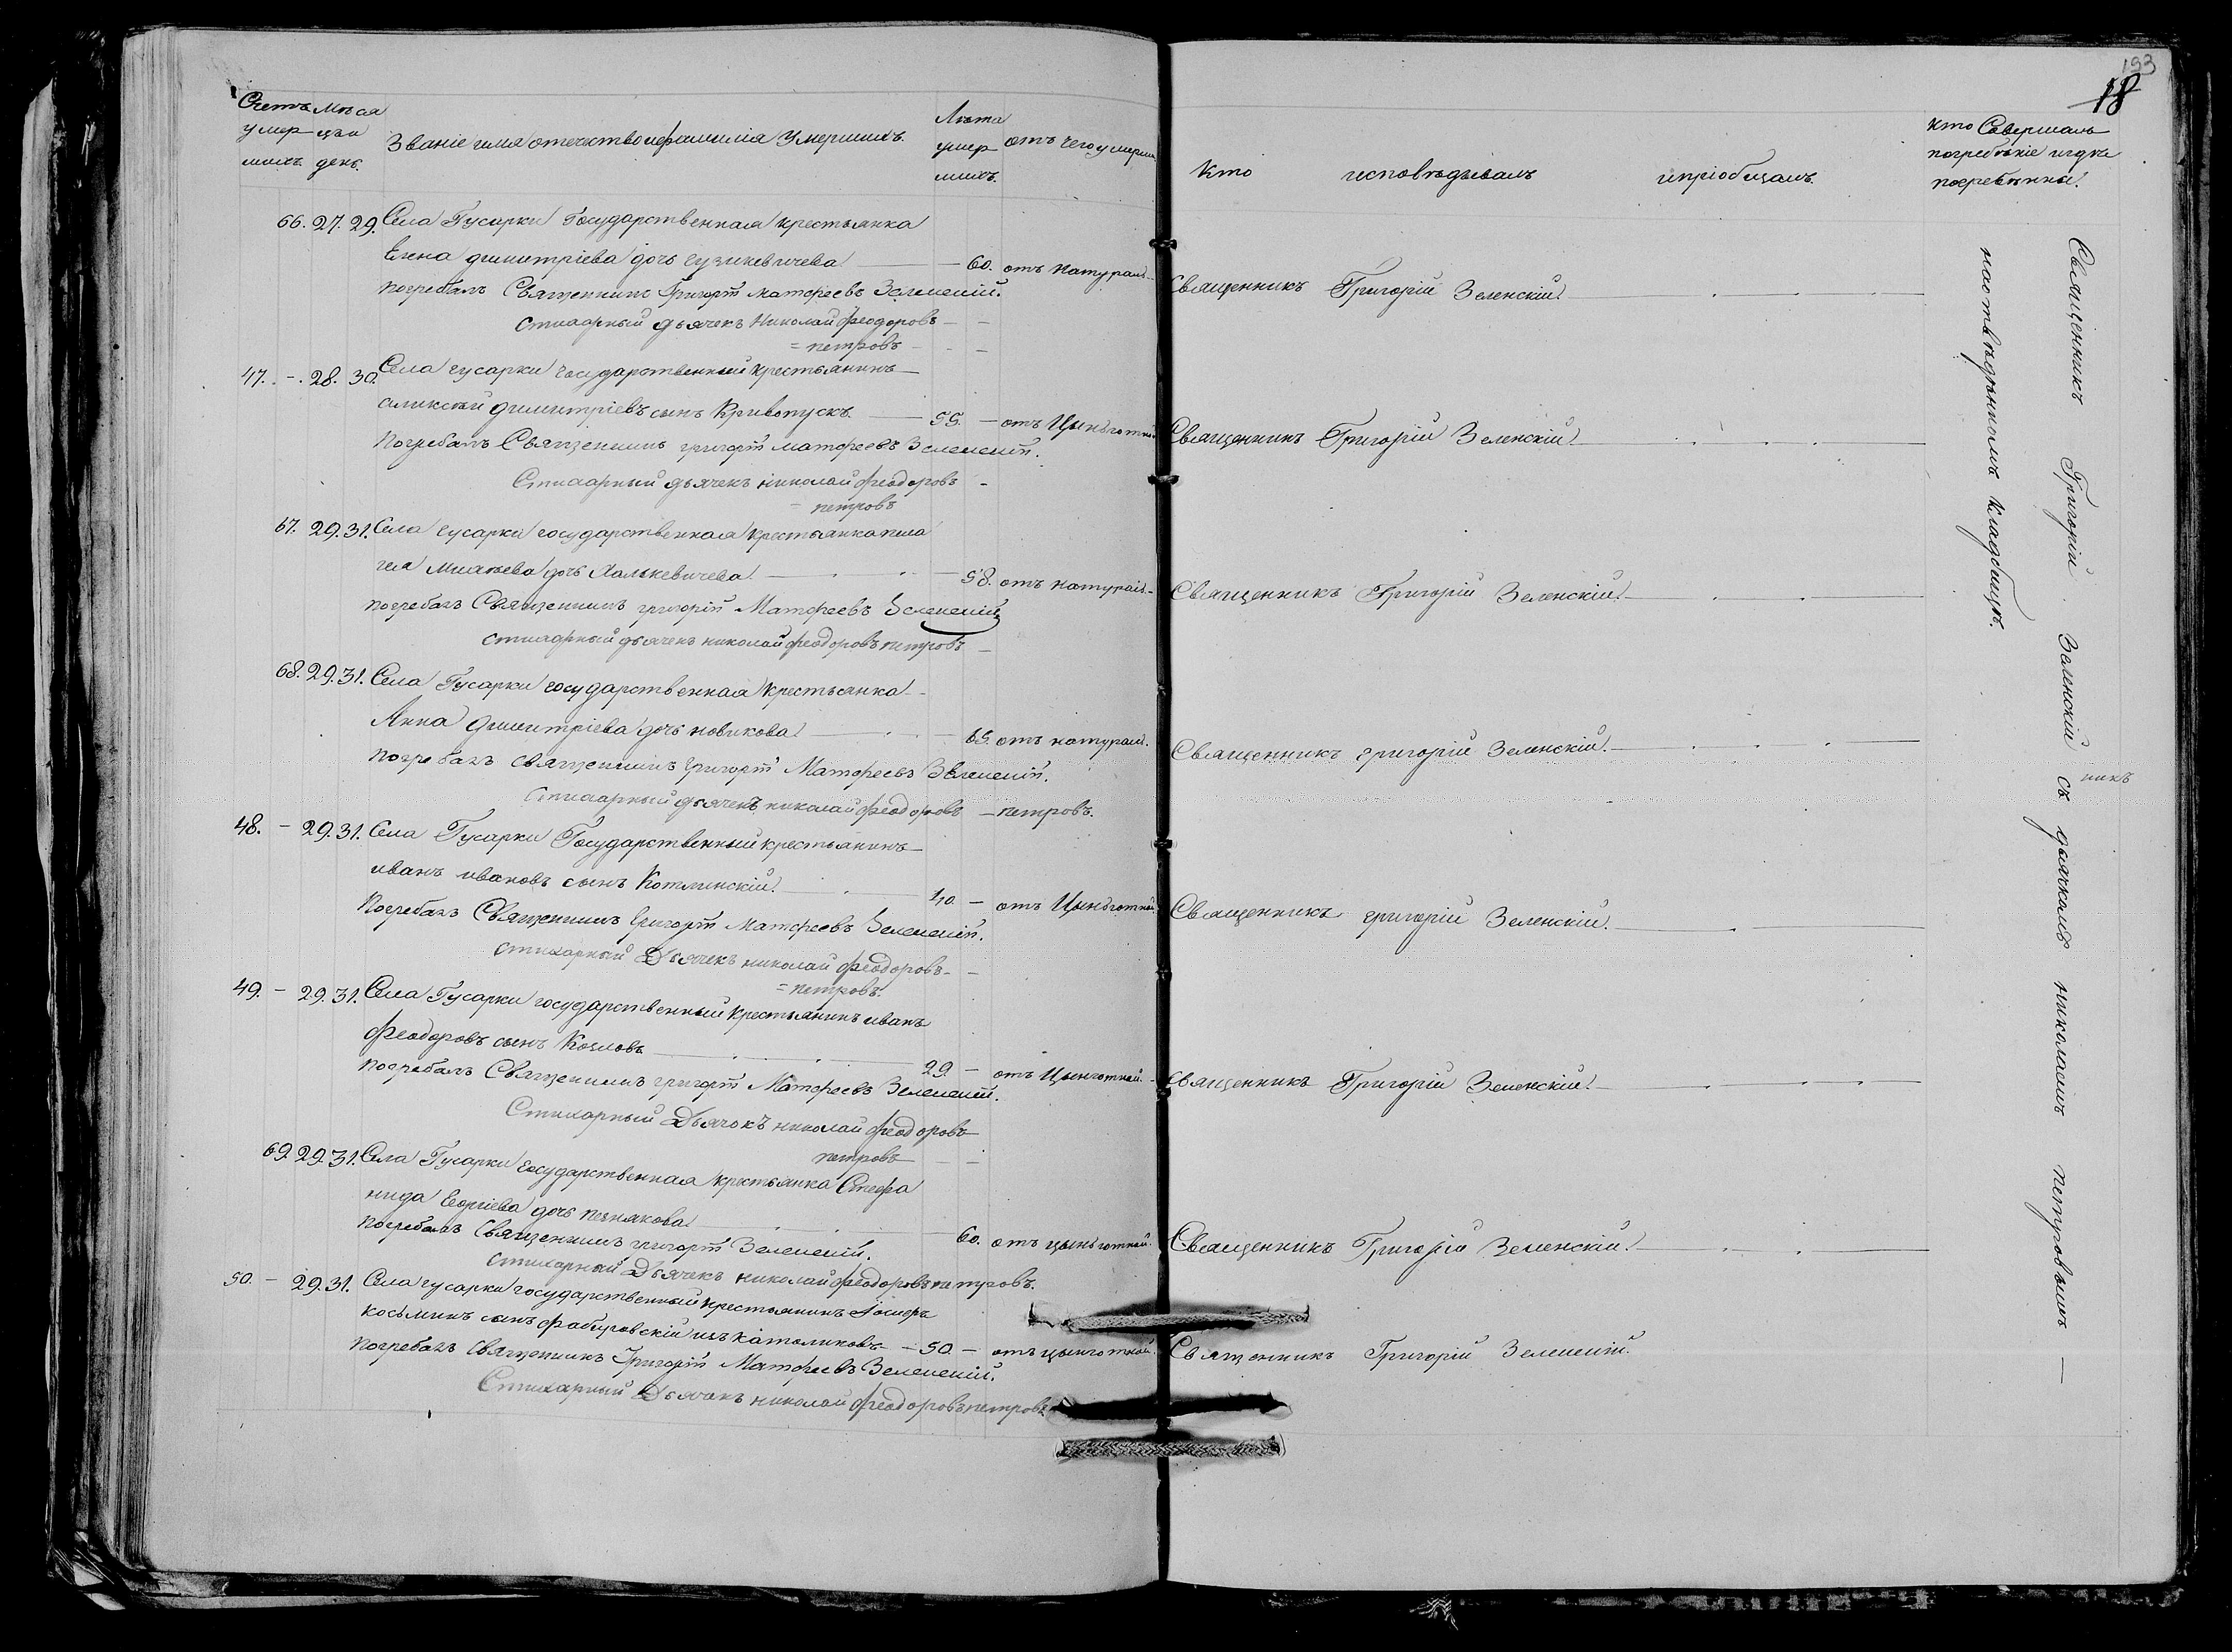 193
18
Счетъ умер шихъ.
Мѣся цъи день.
Званіе имя отечество и фамилія Умершихъ.
Лѣта умер шихъ.
отъ чего умерли
Кто исповѣдывалъ и пріобщалъ.
Кто Совершалъ
погребѣніе и гдѣ
погребѣнны.
66. 27. 29. Села Гусарки Государственная крестьянка
Елена димитріева дочь гузикевичева — 60. отъ натурал.
Священникъ Григорій Зеленскій.
погребалъ Священникъ Григорій Матфеевъ Зеленскій.
Стихарный дьячекъ Николай феодоровъ
= петровъ
47. - 28. 30. Села гусарки государственный крестьянинъ
аликсѣй димитріевъ сынъ Кривопускъ. — 55. — отъ Цынготной
Священникъ Григорій Зеленскій.
Погребалъ Священникъ григорій матфеевъ Зеленскій.
Стихарный дьячекъ николай феодоровъ
= петровъ
67. 29. 31. Села гусарки государственная крестьянка пела
гея Михѣева дочь Халькевичева. — 58. отъ натурал.
Священникъ Григорій Зеленскій.
погребалъ Священникъ григорій Матфеевъ Зеленскій
стихарный дьячекъ николай феодоровъ петровъ
68. 29. 31. Села Гусарки государственная крестьянка
Анна димитріева дочь новикова. — 65. отъ натурал.
Священникъ григорій Зеленскій.
погребалъ священникъ григорій Матфеевъ Зеленскій.
Стихарный дьячекъ николай феодоровъ — петровъ.
48. - 29. 31. Села Гусарки Государственный крестьянинъ
иванъ ивановъ сынъ Котлинскій. — 40. — отъ Цынготной
Священникъ григорій Зеленскій.
Погребалъ Священникъ Григорій Матфеевъ Зеленскій.
стихарный Дьячекъ николай феодоровъ
= петровъ.
49. - 29. 31. Села Гусарки государственный крестьянинъ иванъ
феодоровъ сынъ Козловъ — 29. — отъ Цынготной.
Священникъ Григорій Зеленскій.
погребалъ Священникъ григорій Матфеевъ Зеленскій.
Стихарный Дьячокъ николай феодоровъ
петровъ
69. 29. 31. Села Гусарки государственная крестьянка Стефа
нида Еоргіева дочь познякова. — 60. отъ цынготной.
Священникъ Григорій Зеленскій.
погребалъ Священникъ григорій Зеленскій.
стихарный Дьячекъ николай феодоровъ петровъ.
50. - 29. 31. Села гусарки государственный крестьянинъ Іосифъ
косьминъ сынъ фабировскій изъ католиковъ — 50. — отъ цынготной.
Священникъ Григорій Зеленскій.
погребалъ священникъ Григорій Матфеевъ Зеленскій.
Стихарный Дьячокъ николай феодоровъ петровъ
Священникъ Григорій Зеленскій съ дьячкомъ николаемъ петровымъ —
никъ